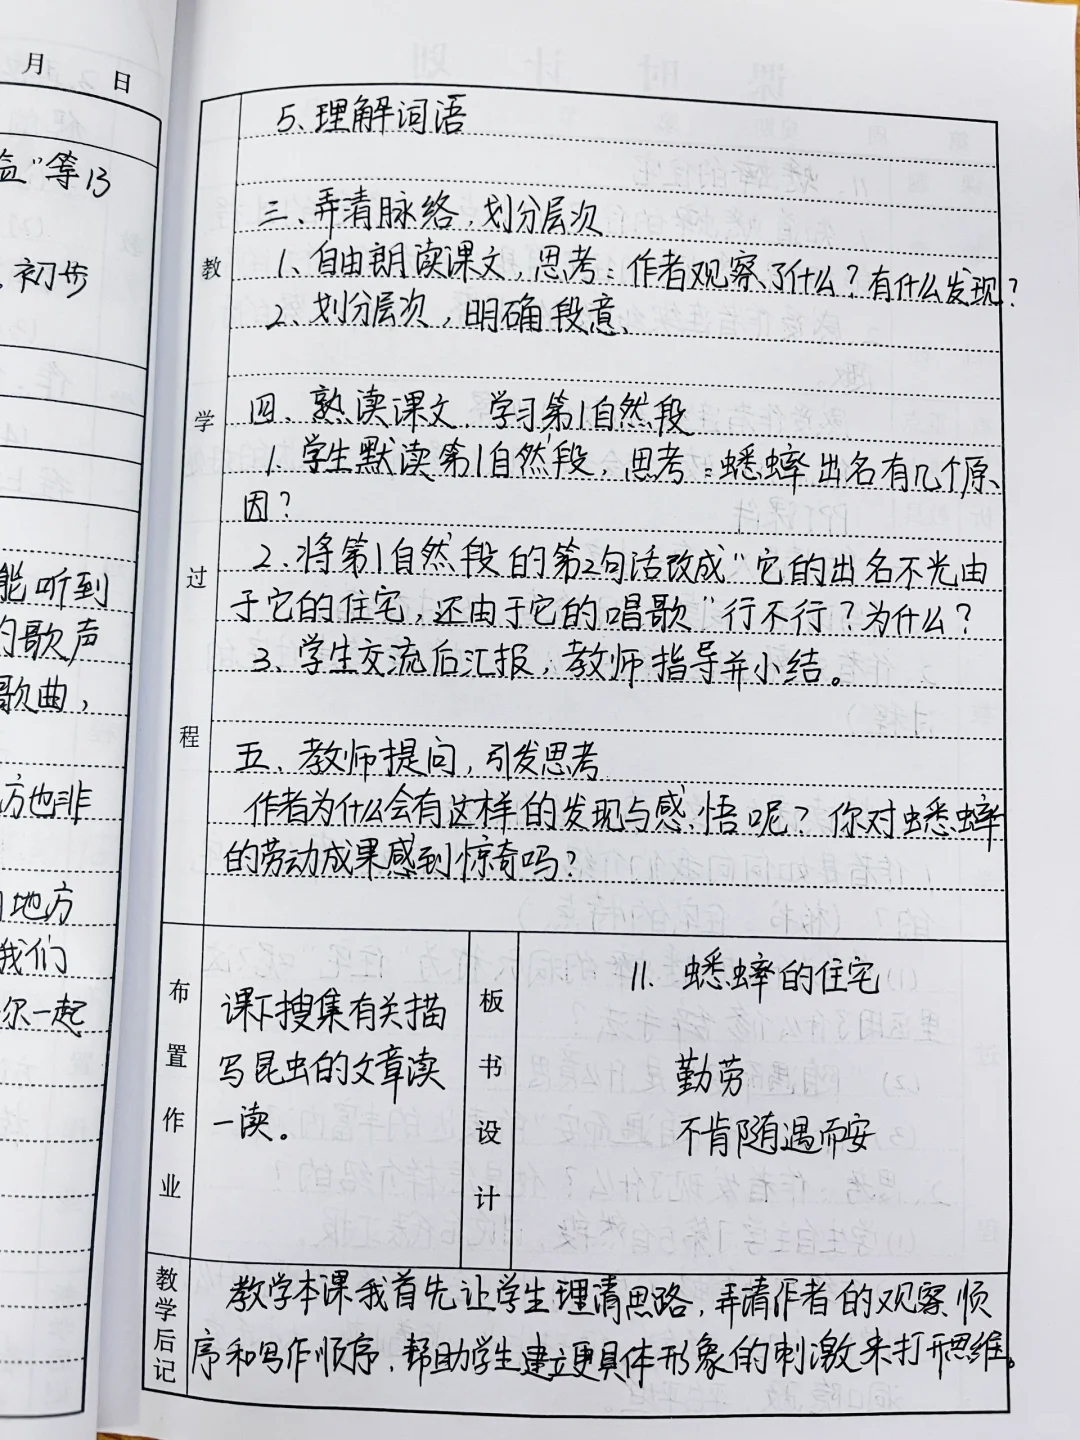 月 日
"等13
初步
能听到
的歌声
歌曲，
方也非
地方
我们
尔一起
教学过程
5、理解词语
三、弄清脉络，划分层次
1、自由朗读课文，思考：作者观察了什么？有什么发现？
2、划分层次，明确段意、
四、熟读课文，学习第1自然段
1、学生默读第1自然段，思考：蟋蟀出名有几个原
因？
2、将第1自然段的第2句话改成"它的出名不光由
于它的住宅，还由于它的唱歌"行不行？为什么？
3、学生交流后汇报，教师指导并小结。
五、教师提问，引发思考
作者为什么会有这样的发现与感悟呢？你对蟋蟀
的劳动成果感到惊奇吗？
布置作业
课下搜集有关描
写昆虫的文章读
一读。
板书设计
11、蟋蟀的住宅
勤劳
不肯随遇而安
教学后记
教学本课我首先让学生理清思路，弄清作者的观察顺
序和写作顺序，帮助学生建立更具体形象的刺激来打开思维。